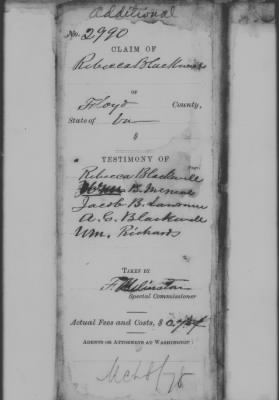 Additional
No. 2990
CLAIM OF
Rebecca Blackwell
OF
Floyd County,
State of Va
$
TESTIMONY OF
Rebecca Blackwell
B.
Jacob B. Lawrence
A. C. Blackwell
Wm. Richards
TAKEN BY
Special Commissioner
Actual Fees and Costs, $
AGENTS OR ATTORNEYS AT WASHINGTON: